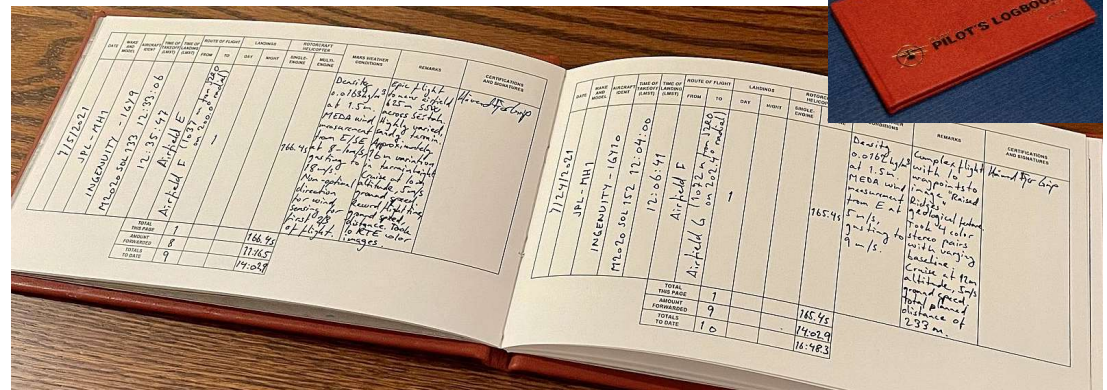 PILOT'S LOGBOOK
DATE
MAKE AND MODEL
AIRCRAFT IDENT
TIME OF TAKEOFF (LMST)
TIME OF LANDING (LMST)
ROUTE OF FLIGHT
FROM
TO
LANDINGS
DAY
NIGHT
ROTORCRAFT HELICOPTER
SINGLE-ENGINE
MULTI-ENGINE
MARS WEATHER CONDITIONS
REMARKS
CERTIFICATIONS AND SIGNATURES
7/5/2021
JPL-MH1
INGENUITY - IGY9
M2020 SOL 133 12:33:06
12:35:47
Airfield E
1
166.4s
Density
0.0163kg/m3
at 1.5m.
MEDA wind
measurement
from E/SE
at 8 m/s,
gusting to
18 m/s.
Non optimal
direction
for wind
sensing for
first 2/3
of flight.
Epic flight
to new airfield
625 m SSW
across Séítah.
Highly varied,
sandy terrain.
Approximately
16m variation
in terrain height.
Cruise at low
altitude, 5m/s
ground speed.
Record flight time,
ground speed,
distance. Took
10 RTE color
images.
TOTAL THIS PAGE
1
166.4s
AMOUNT FORWARDED
8
TOTALS TO DATE
9
14:02.9
DATE
MAKE AND MODEL
AIRCRAFT IDENT
TIME OF TAKEOFF (LMST)
TIME OF LANDING (LMST)
ROUTE OF FLIGHT
FROM
TO
LANDINGS
DAY
NIGHT
SINGLE-
REMARKS
CERTIFICATIONS AND SIGNATURES
7/24/2021
JPL-MH1
INGENUITY - IGY10
M2020 SOL 152 12:04:00
12:06:41
Airfield
Airfield G
1
165.4s
Density
0.0162 kg/m3
at 1.5m.
MEDA wind
measurement
from E at
5 m/s,
gusting to
9 m/s.
Complex flight
with 10
waypoints to
image "Raised
Ridges"
geological feature.
Took 4 color
stereo pairs
with varying
baseline.
Cruise at 12m
altitude, 5m/s
ground speed.
Total planned
distance of
233 m.
TOTAL THIS PAGE
1
165.4s
AMOUNT FORWARDED
9
14:02.9
TOTALS TO DATE
10
16:48.3